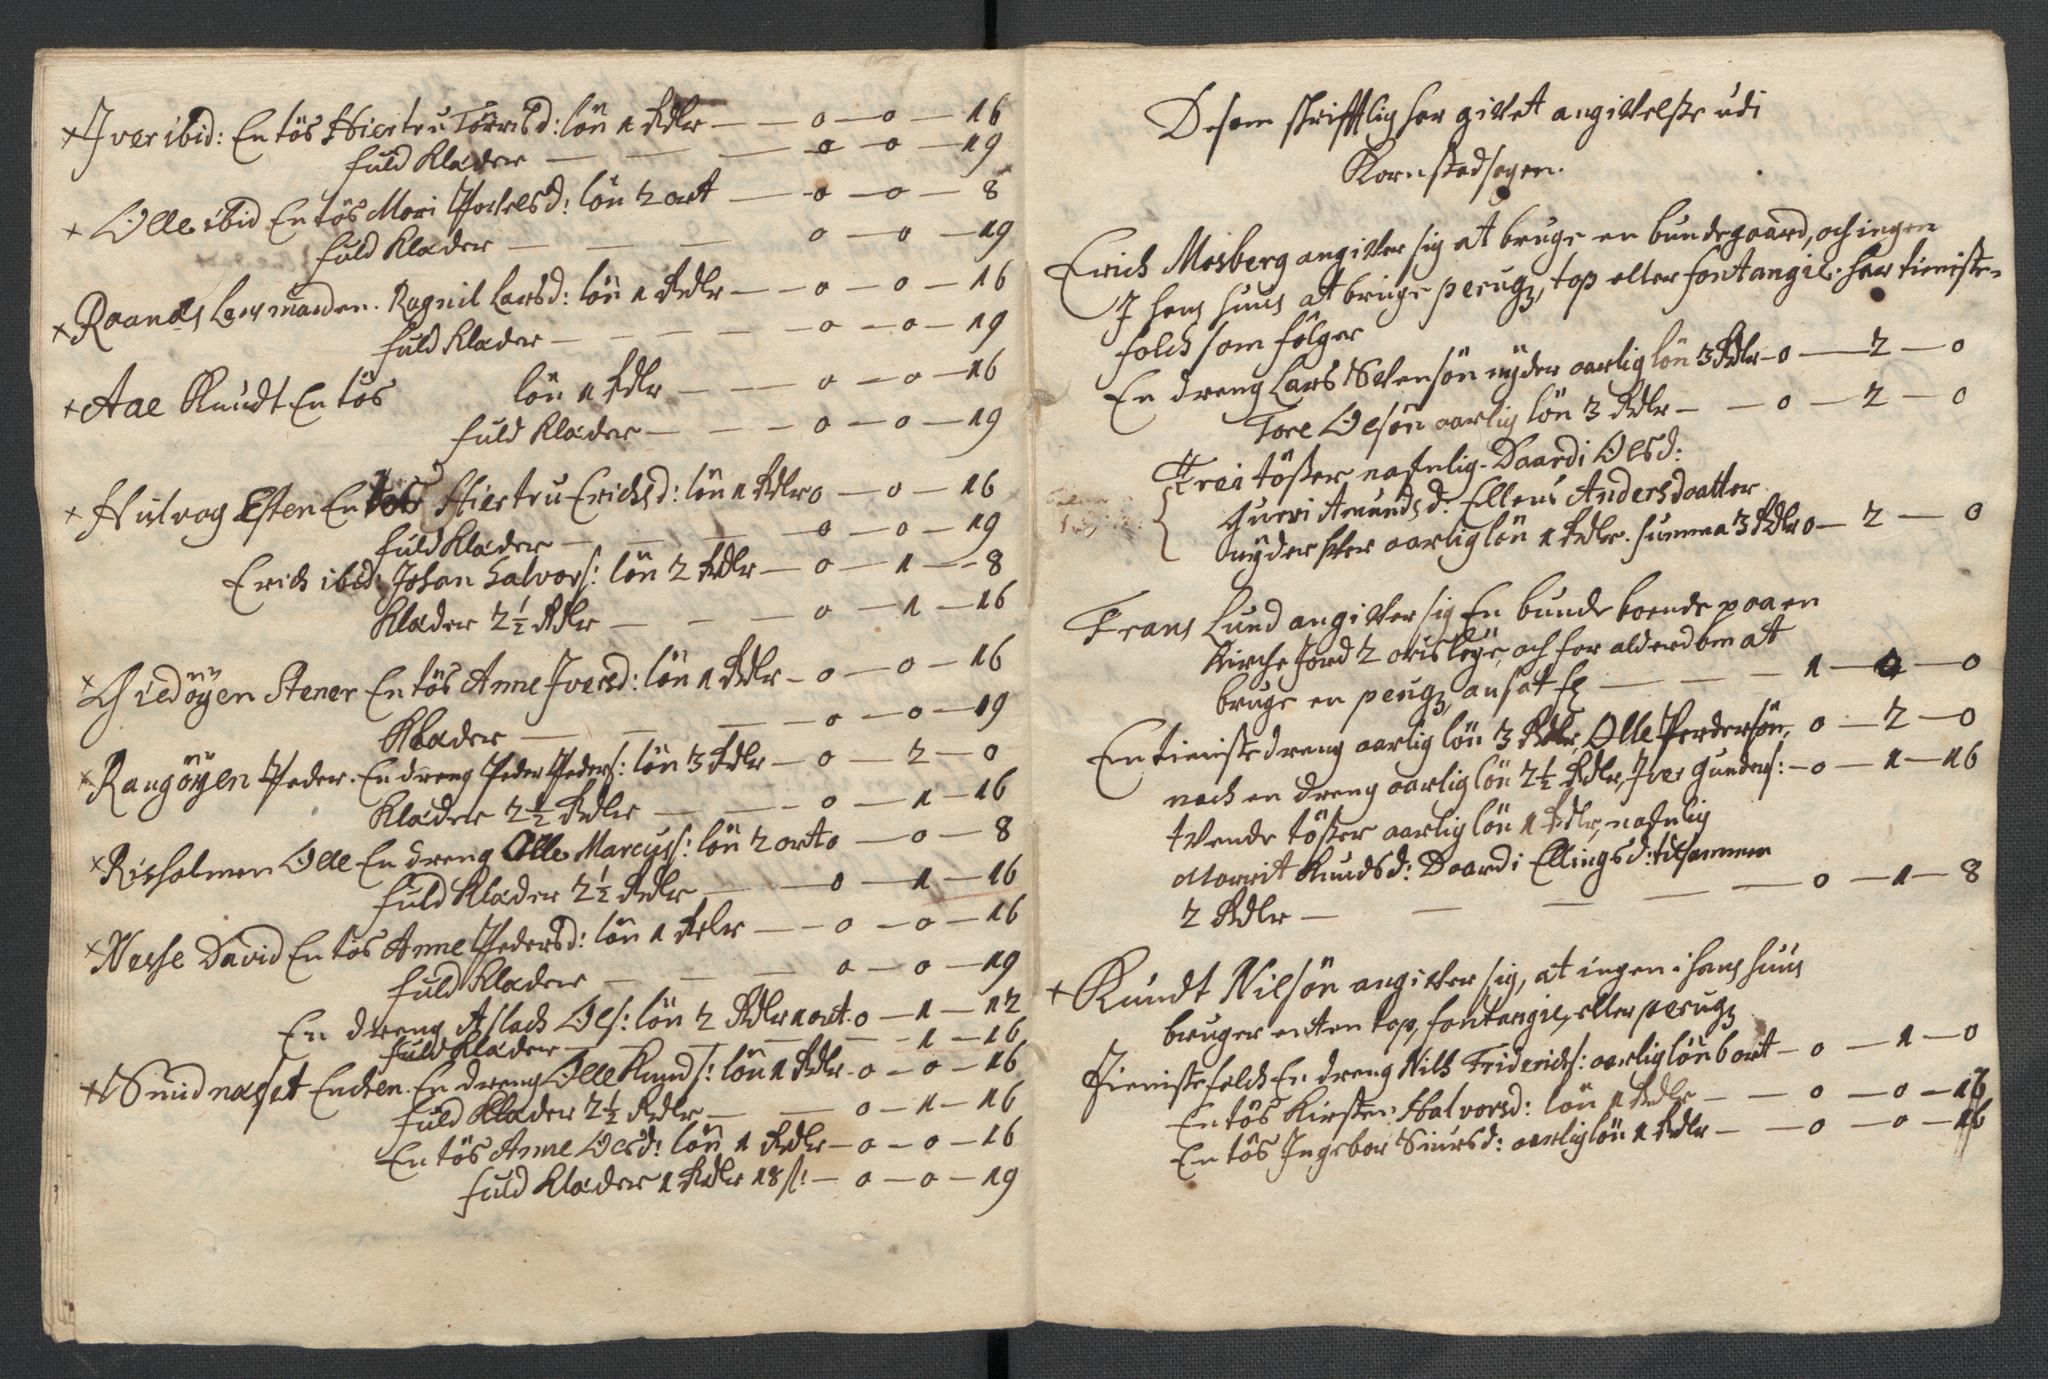 × Iver ibid: En tös Hiertru Torrisd: lön 1 Rdlr — — 0 — 0 — 16
fuld Klæder — — — 0 — 0 — 19
× Olle ibid En tös Mari Pofvelsd: lön 2 ort — 0 — 0 — 8
fuld Klæder — — — 0 — 0 — 19
× Raanes Larsmarden. Ragnil Larsd: lön 1 Rdlr — — 0 — 0 — 16
fuld Klæder — — — 0 — 0 — 19
× Aae Knudt En tös lön 1 Rdlr — — 0 — 0 — 16
fuld Klæder — — — 0 — 0 — 19
× Hulvog Esten En tös Hiertru Erichsd: lön 1 Rdlr 0 — 0 — 16
fuld Klæder — — — 0 — 0 — 19
Erich ibid: Johan Halvors: lön 2 Rdlr — 0 — 1 — 8
Klæder 2½ Rdlr — — — 0 — 1 — 16
× Giedöyen Stener En tös Anne Iversd: lön 1 Rdlr — 0 — 0 — 16
Klæder — — — 0 — 0 — 19
× Rangöyen Peder. En dreng Peder Peders: lön 3 Rdlr — 0 — 2 — 0
Klæder 2½ Rdlr — — — 0 — 1 — 16
× Risholmen Olle En dreng Olle Marcuss: lön 2 ort 0 — 0 — 8
fuld Klæder 2½ Rdlr — — 0 — 1 — 16
× Nesse David En tös Anne Pedersd: lön 1 Rdlr — — 0 — 0 — 16
fuld Klæder — — — 0 — 0 — 19
En dreng Aslach Ols: lön 2 Rdlr 1 ort. 0 — 1 — 12
fuld Klæder — — — 1 — 16
× Smidnæset Enchen. En dreng Olle Knuds: lön 1 Rdlr. 0 — 0 — 16
fuld Klæder 2½ Rdlr — — 0 — 1 — 16
En tös Anne Olsd: lön 1 Rdlr — 0 — 0 — 16
fuld Klæder 1 Rdlr 18 s: — 0 — 0 — 19
De som skrifftlig har givet angivelsse udi
Kornstadsogen.
Erich Mosberg angiver sig at bruge en bundegaard, och ingen
I hans huus at bruge perugz, top eller fontangie. har tieniste-
folch som fölger
En dreng Lars Svensön nyder aarlig lön 3 Rdlr — 0 — 2 — 0
Tore Olsön aarlig lön 3 Rdlr — — 0 — 2 — 0
Trei tösser, nafnlig. Daardi Olsd:
Gueri Amundsd: Ellens Andersdaatter
nyder hver aarlig lön 1 Rdlr. summa 3 Rdlr 0 — 2 — 0
Frans Lund angiver sig En bunde boende paa en
Kirche Jord 2 öris leye, och for alderdom at
bruge en perugz, ansat — — — 1 — 0 — 0
En tieniste dreng aarlig lön 3 Rdlr, Olle Perdersön, 0 — 2 — 0
noch en dreng aarlig lön 2½ Rdlr, Iver Gunders: — 0 — 1 — 16
tvende tösser aarlig lön 1 Rdlr, nafnlig
Marrit Knudsd: Daardi Ellingsd: tilsammen
2 Rdlr — — — — — 0 — 1 — 8
× Knudt Nilsön angiver sig, at ingen i hans huus
bruger enten top, fontangie, eller perugz
Tieniste folch En dreng Nils Friderichs: aarlig lön 6 ort — 0 — 1 — 0
En tös Kirsten Halvorsd: lön 1 Rdlr — — 0 — 0 — 16
En tös Ingebor Siursd: aarlig lön 1 Rdlr — — 0 — 0 — 16